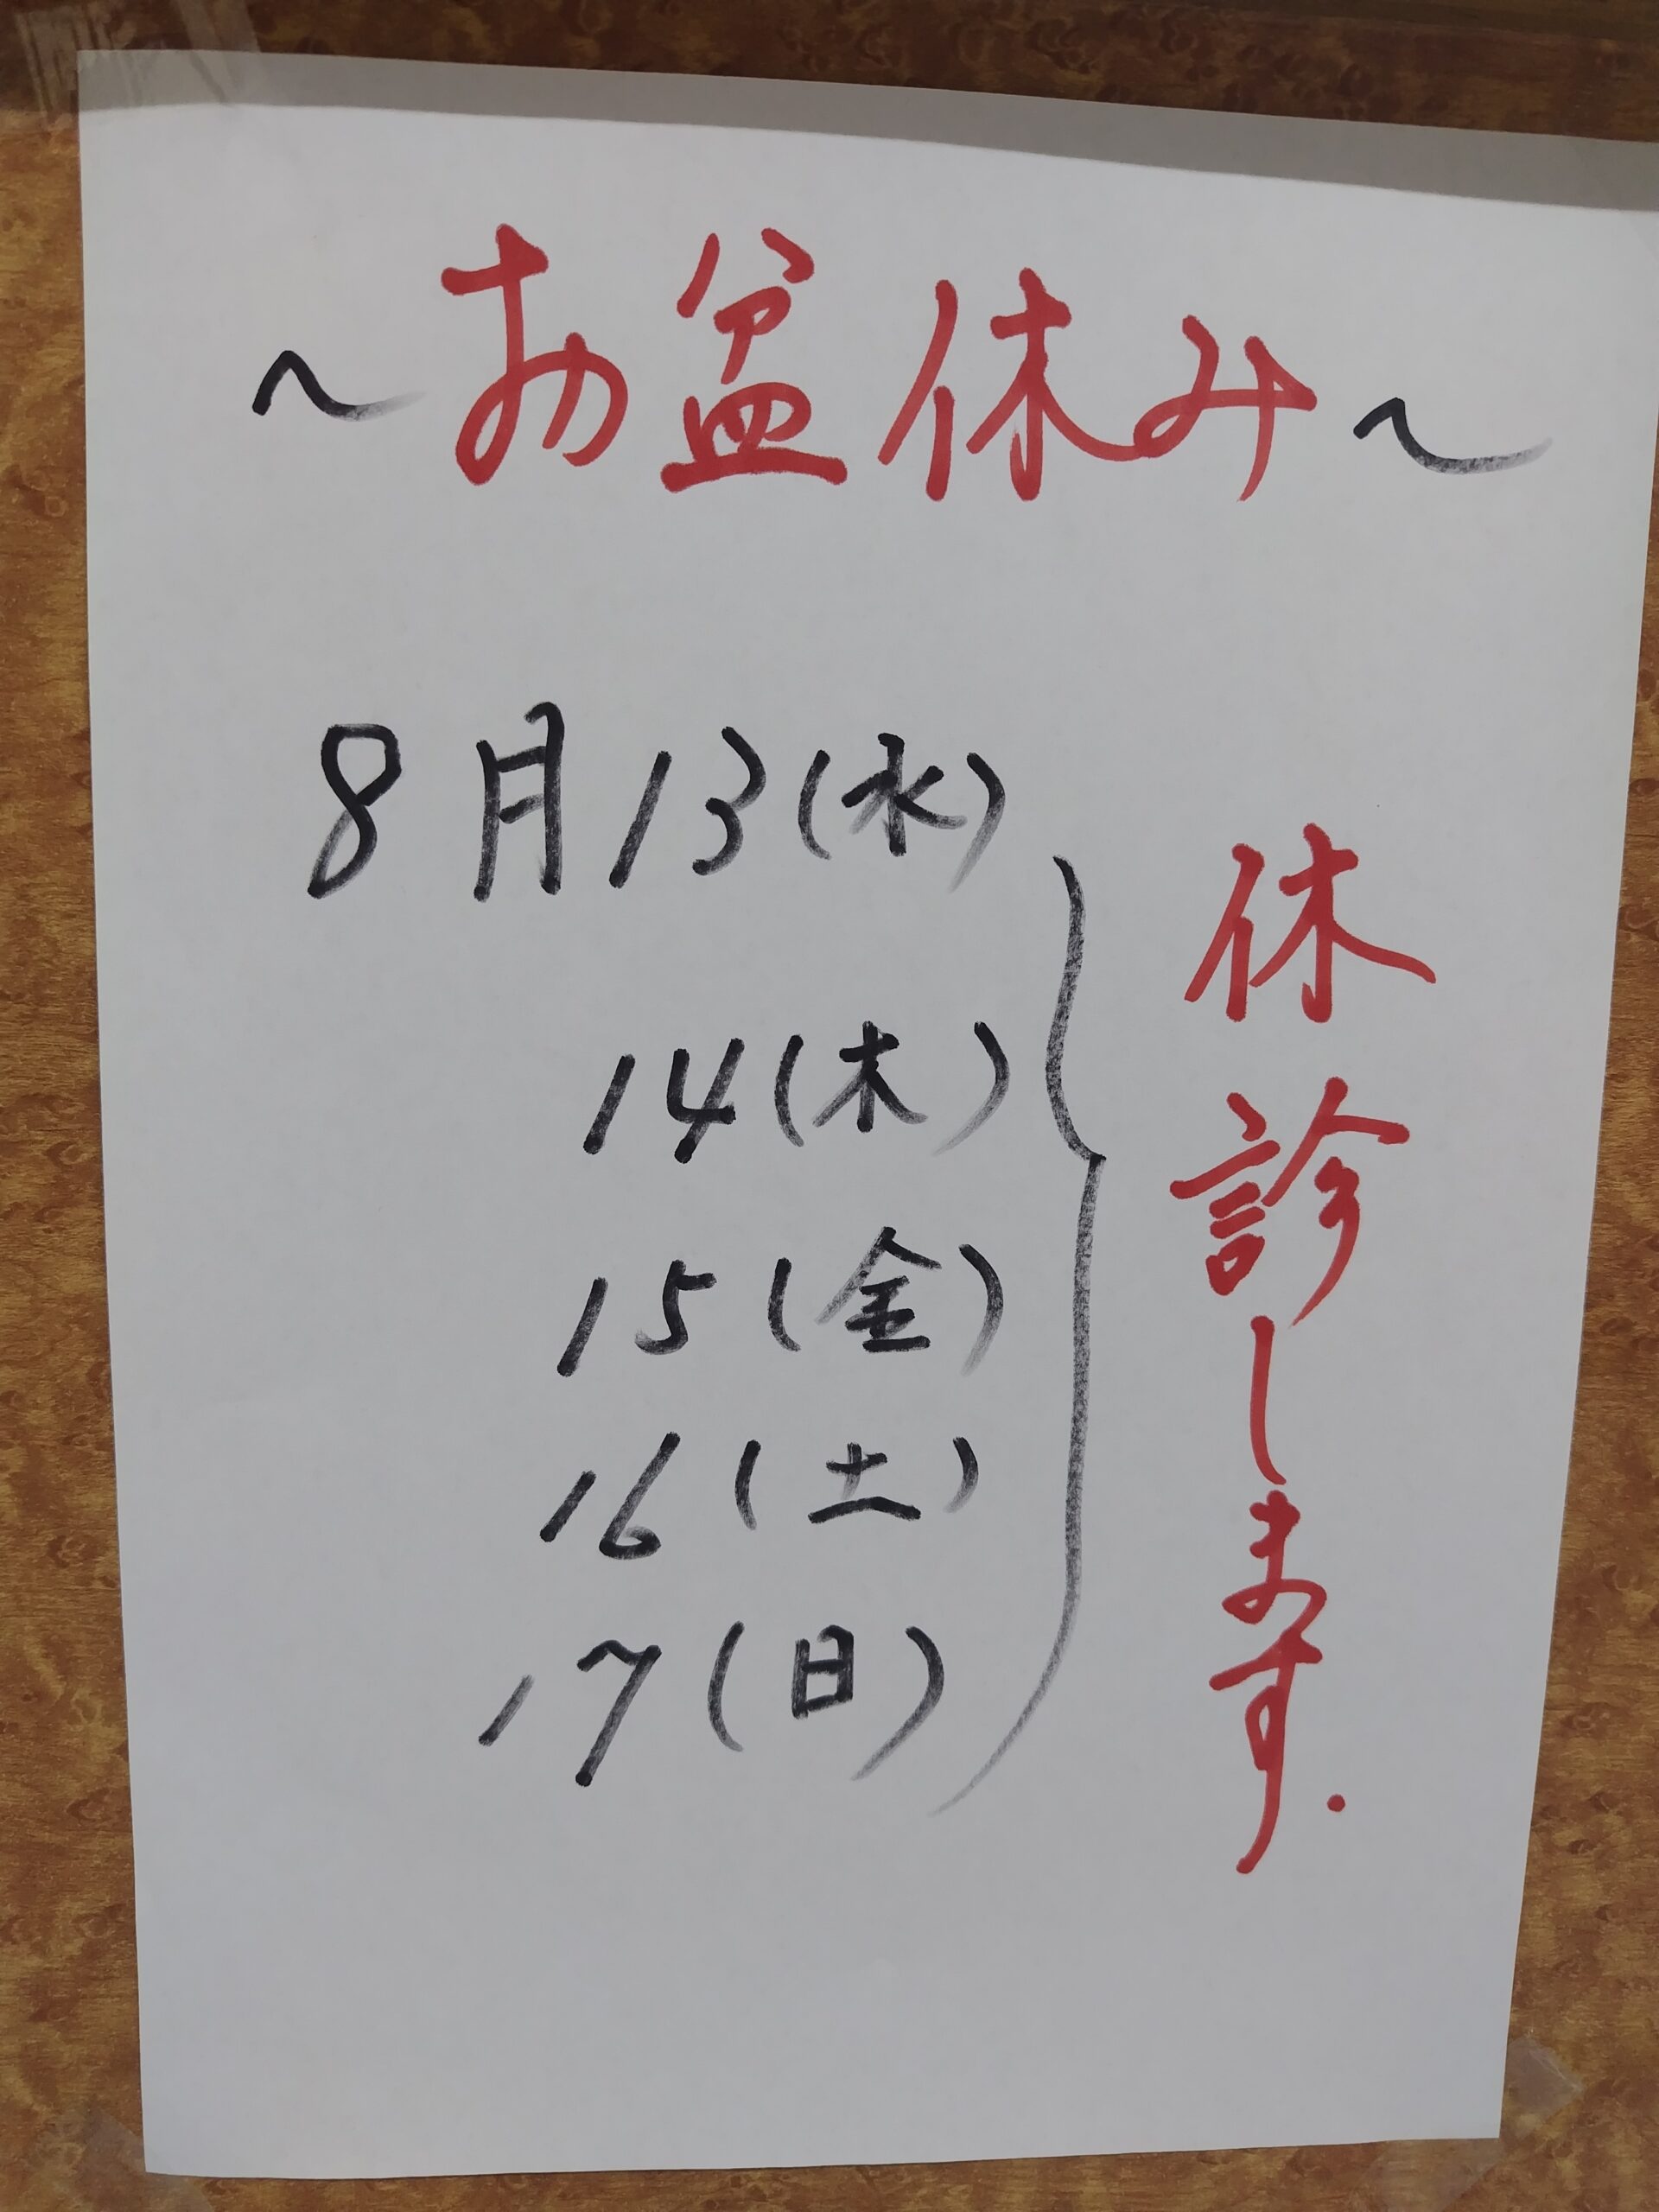 ～お盆休み～
8月13(水)
14(木)
15(金)
16(土)
17(日)
休診します.